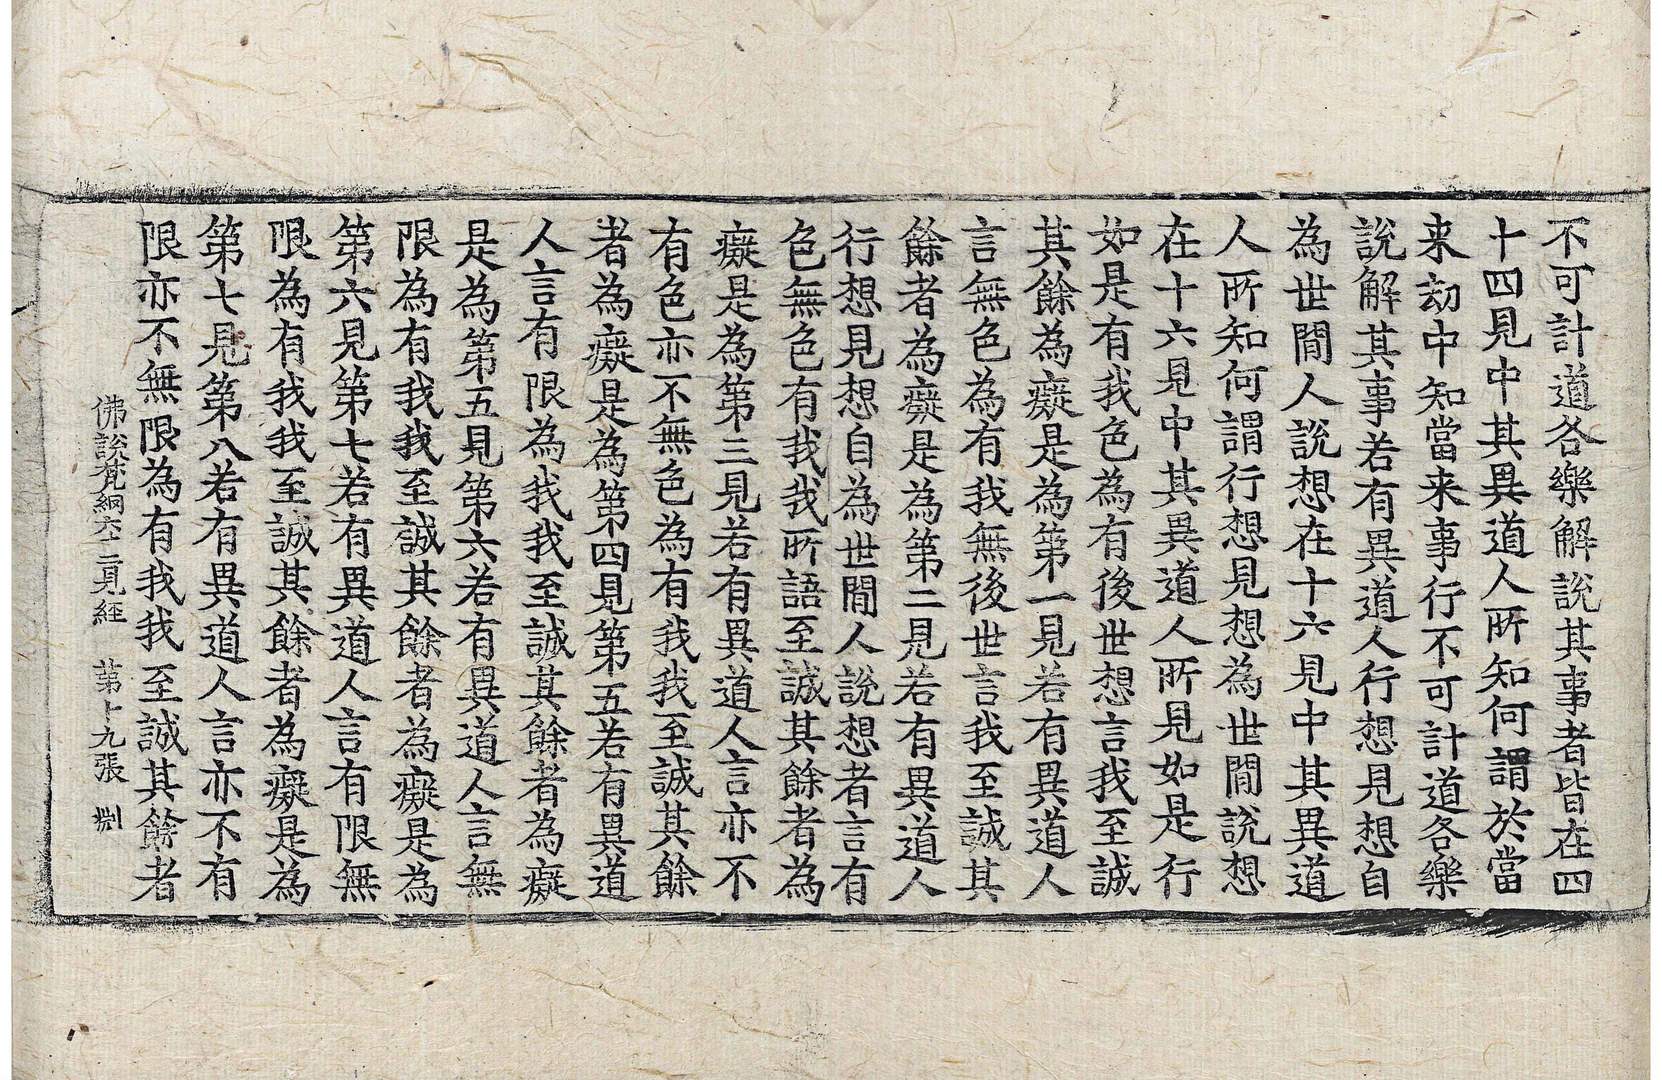 不可計道各樂解說其事者皆在四
十四見中其異道人所知何謂於當
来劫中知當来事行不可計道各樂
說解其事若有異道人行想見想自
為世間人說想在十六見中其異道
人所知何謂行想見想為世間說想
在十六見中其異道人所見如是行
如是有我色為有後世想言我至誠
其餘為癡是為第一見若有異道人
言無色為有我無後世言我至誠其
餘者為癡是為第二見若有異道人
行想見想自為世間人說想者言有
色無色有我我所語至誠其餘者為
癡是為第三見若有異道人言亦不
有色亦不無色為有我我至誠其餘
者為癡是為第四見第五若有異道
人言有限為我我至誠其餘者為癡
是為第五見第六若有異道人言無
限為有我我至誠其餘者為癡是為
第六見第七若有異道人言有限無
限為有我我至誠其餘者為癡是為
第七見第八若有異道人言亦不有
限亦不無限為有我我至誠其餘者
佛說梵網六十二見經 第十九張 淵